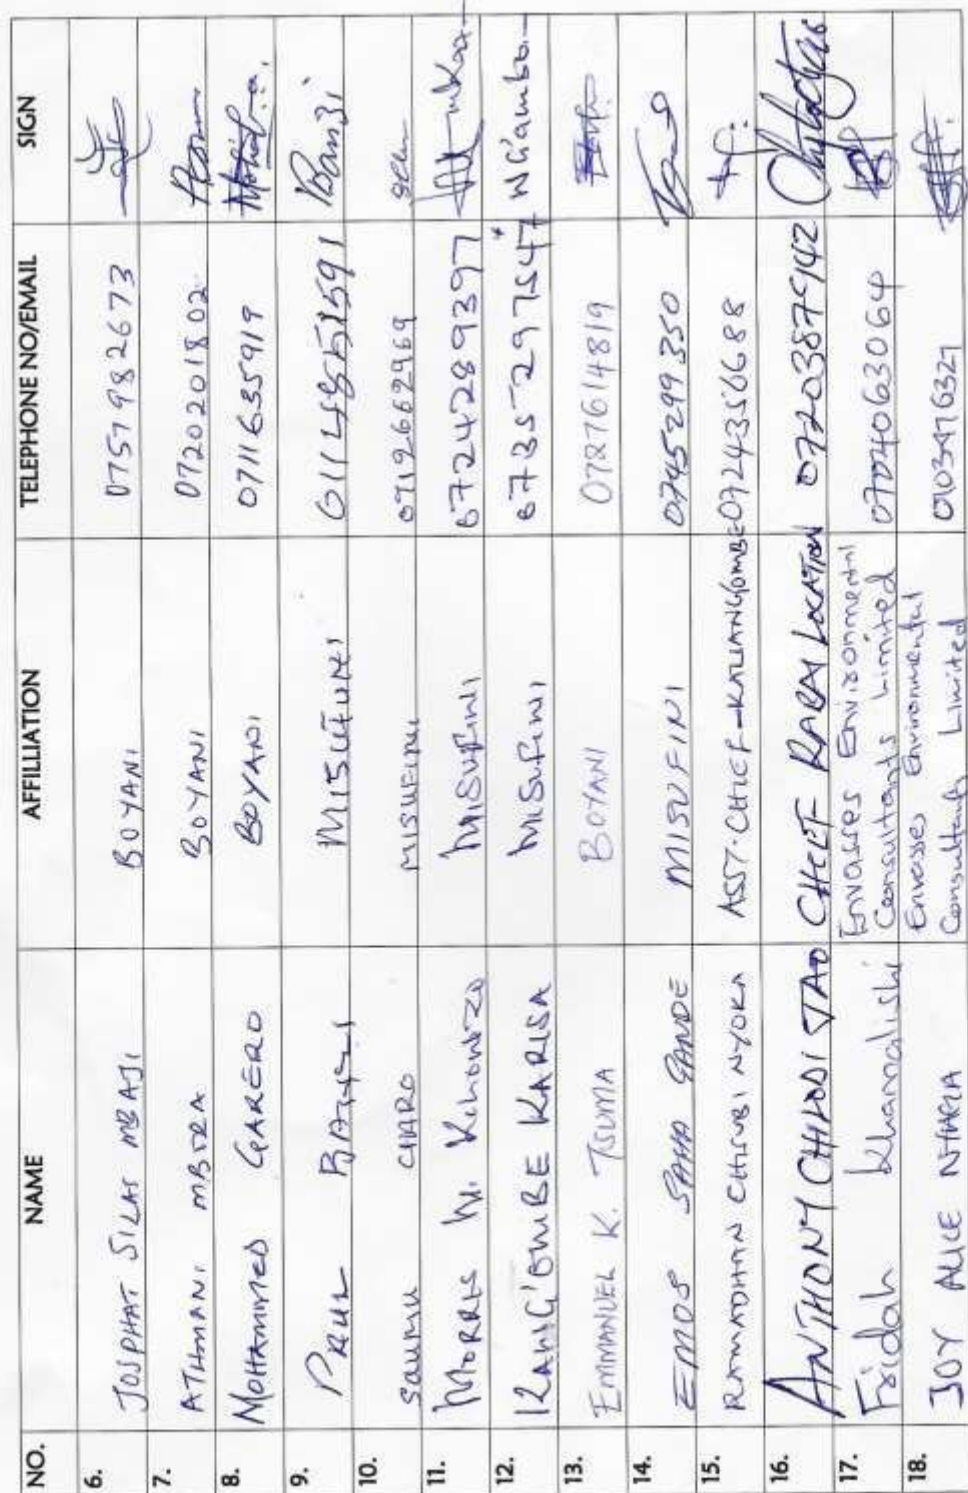 NO. NAME AFFILLIATION TELEPHONE NO/EMAIL SIGN
6. JOSPHAT SILAS MBAJI BOYANI 0757982673
7. ATHMANI MBOZA BOYANI 0720201802
8. MOHAMMED GARERO BOYANI 0711635919
9. PAUL MISUFINI
10. SAUMU CHARO MISUFINI 0712662969
11. MORRIS M. KCHONZO MISUFINI 0724289397
12. KANG'OMBE KARISA MISUFINI 0735297547
13. EMMANUEL K. TSUMA BOYANI 0727614819
14. EMOS SAHA GANDE MISUFINI 0745299350
15. RAMADHAN CHISUBI NYOKA ASST. CHIEF-KALIANGOMBE 0724356688
16. ANTHONY CHILODI JAO CHIEF RABAI LOCATION 0720387942
17. Fridah Khamalishi Envasses Environmental
Consultants Limited 0704063064
18. JOY ALICE Envasses Environmental
Consultants Limited 0103476327